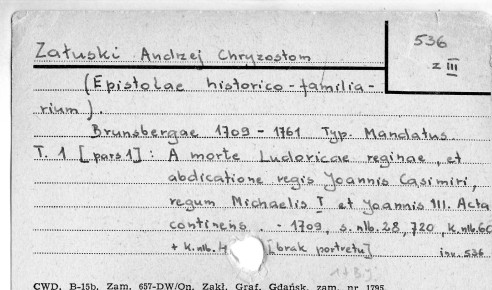 Załuski Andrzej Chryzostom
536
z III
(Epistolae historico-familia-
rium).
Brunsbergae 1709 - 1761 Typ. Mandatus.
T. 1 [pars 1]: A morte Ludoricae reginae, et
abdicatione regis Joannis Casimiri,
regum Michaelis I et Joannis III. Acta
continens. - 1709, s. nlb. 28, 720, k. nlb. 60
+ k. nlb. 4 [brak portretu] inw. 536
CWD. B-15b. Zam. 657-DW/On. Zakł. Graf. Gdańsk, zam. nr 1795